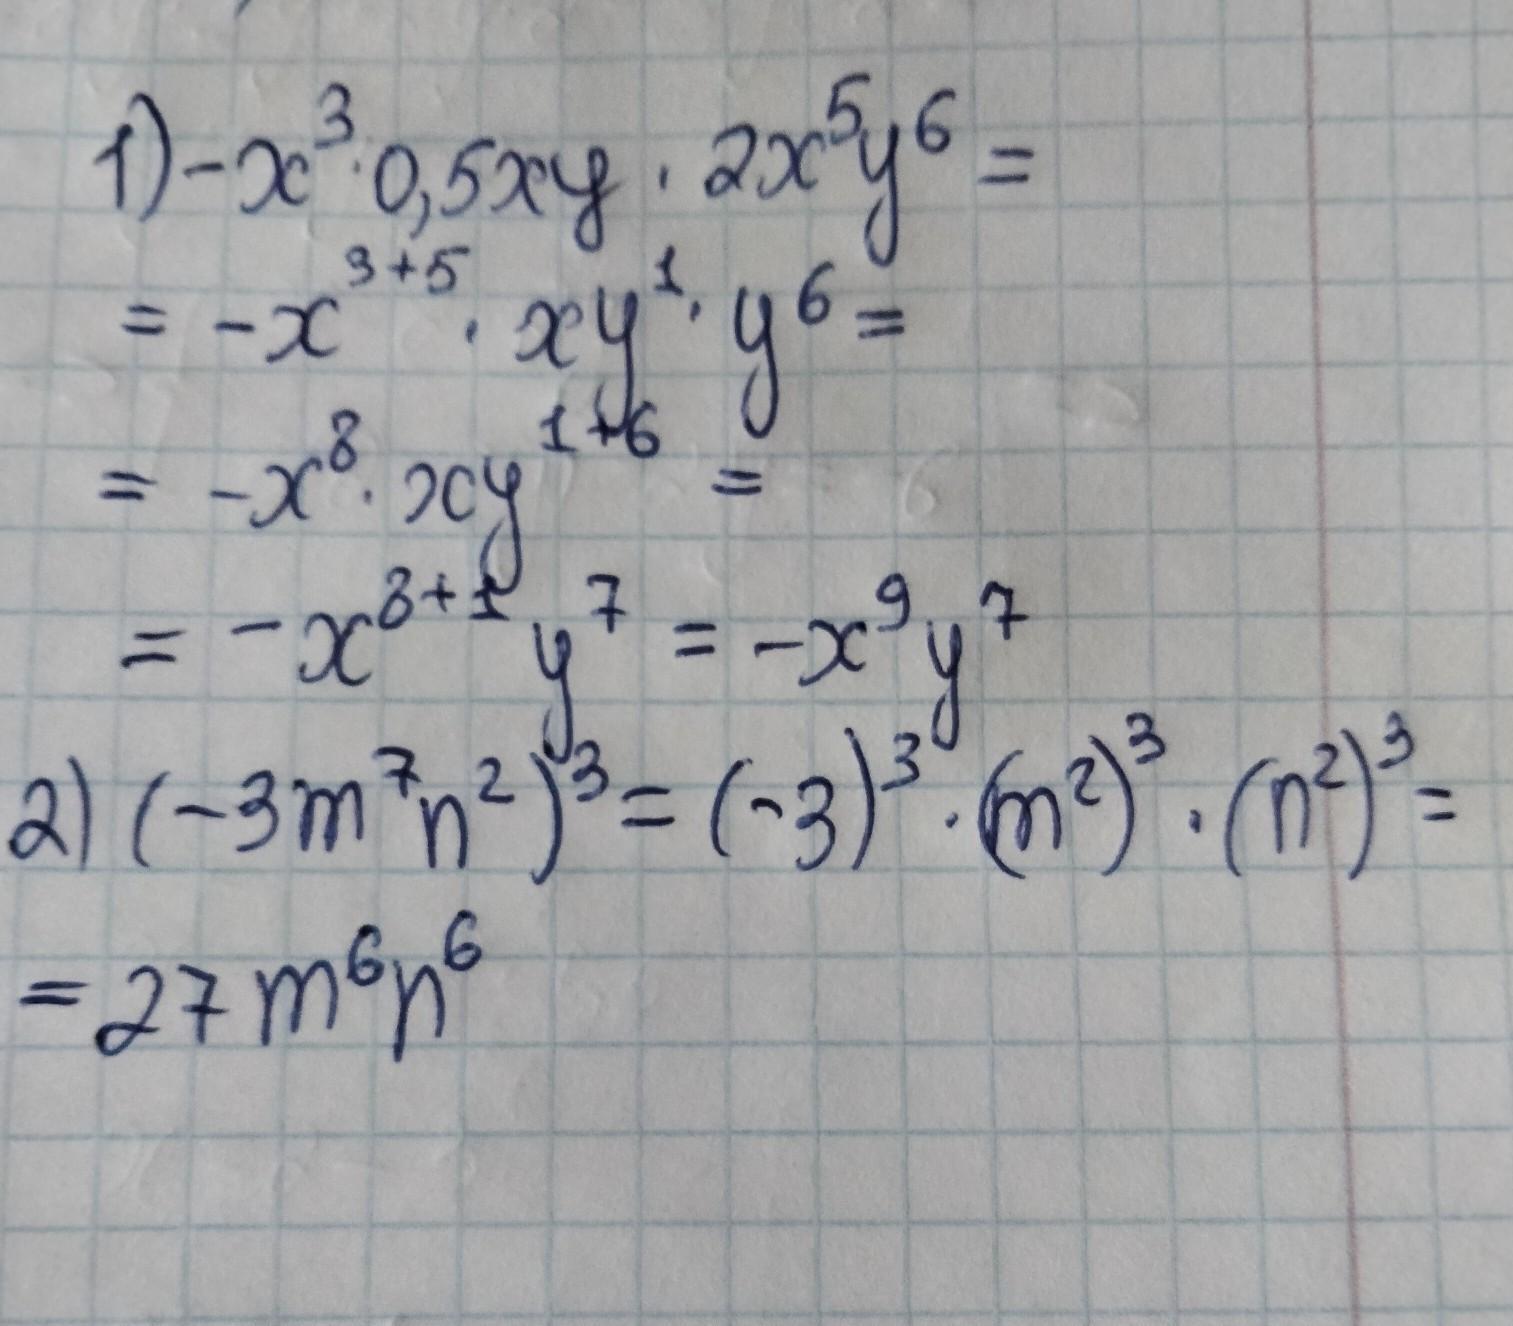 1) -x³·0,5xy · 2x⁵y⁶ =
= -x³⁺⁵ · xy¹· y⁶ =
= -x⁸· xy¹⁺⁶ =
= -x⁸⁺¹y⁷ = -x⁹y⁷
2) (-3m⁷n²)³ = (-3)³ · (m²)³ · (n²)³ =
= 27m⁶n⁶